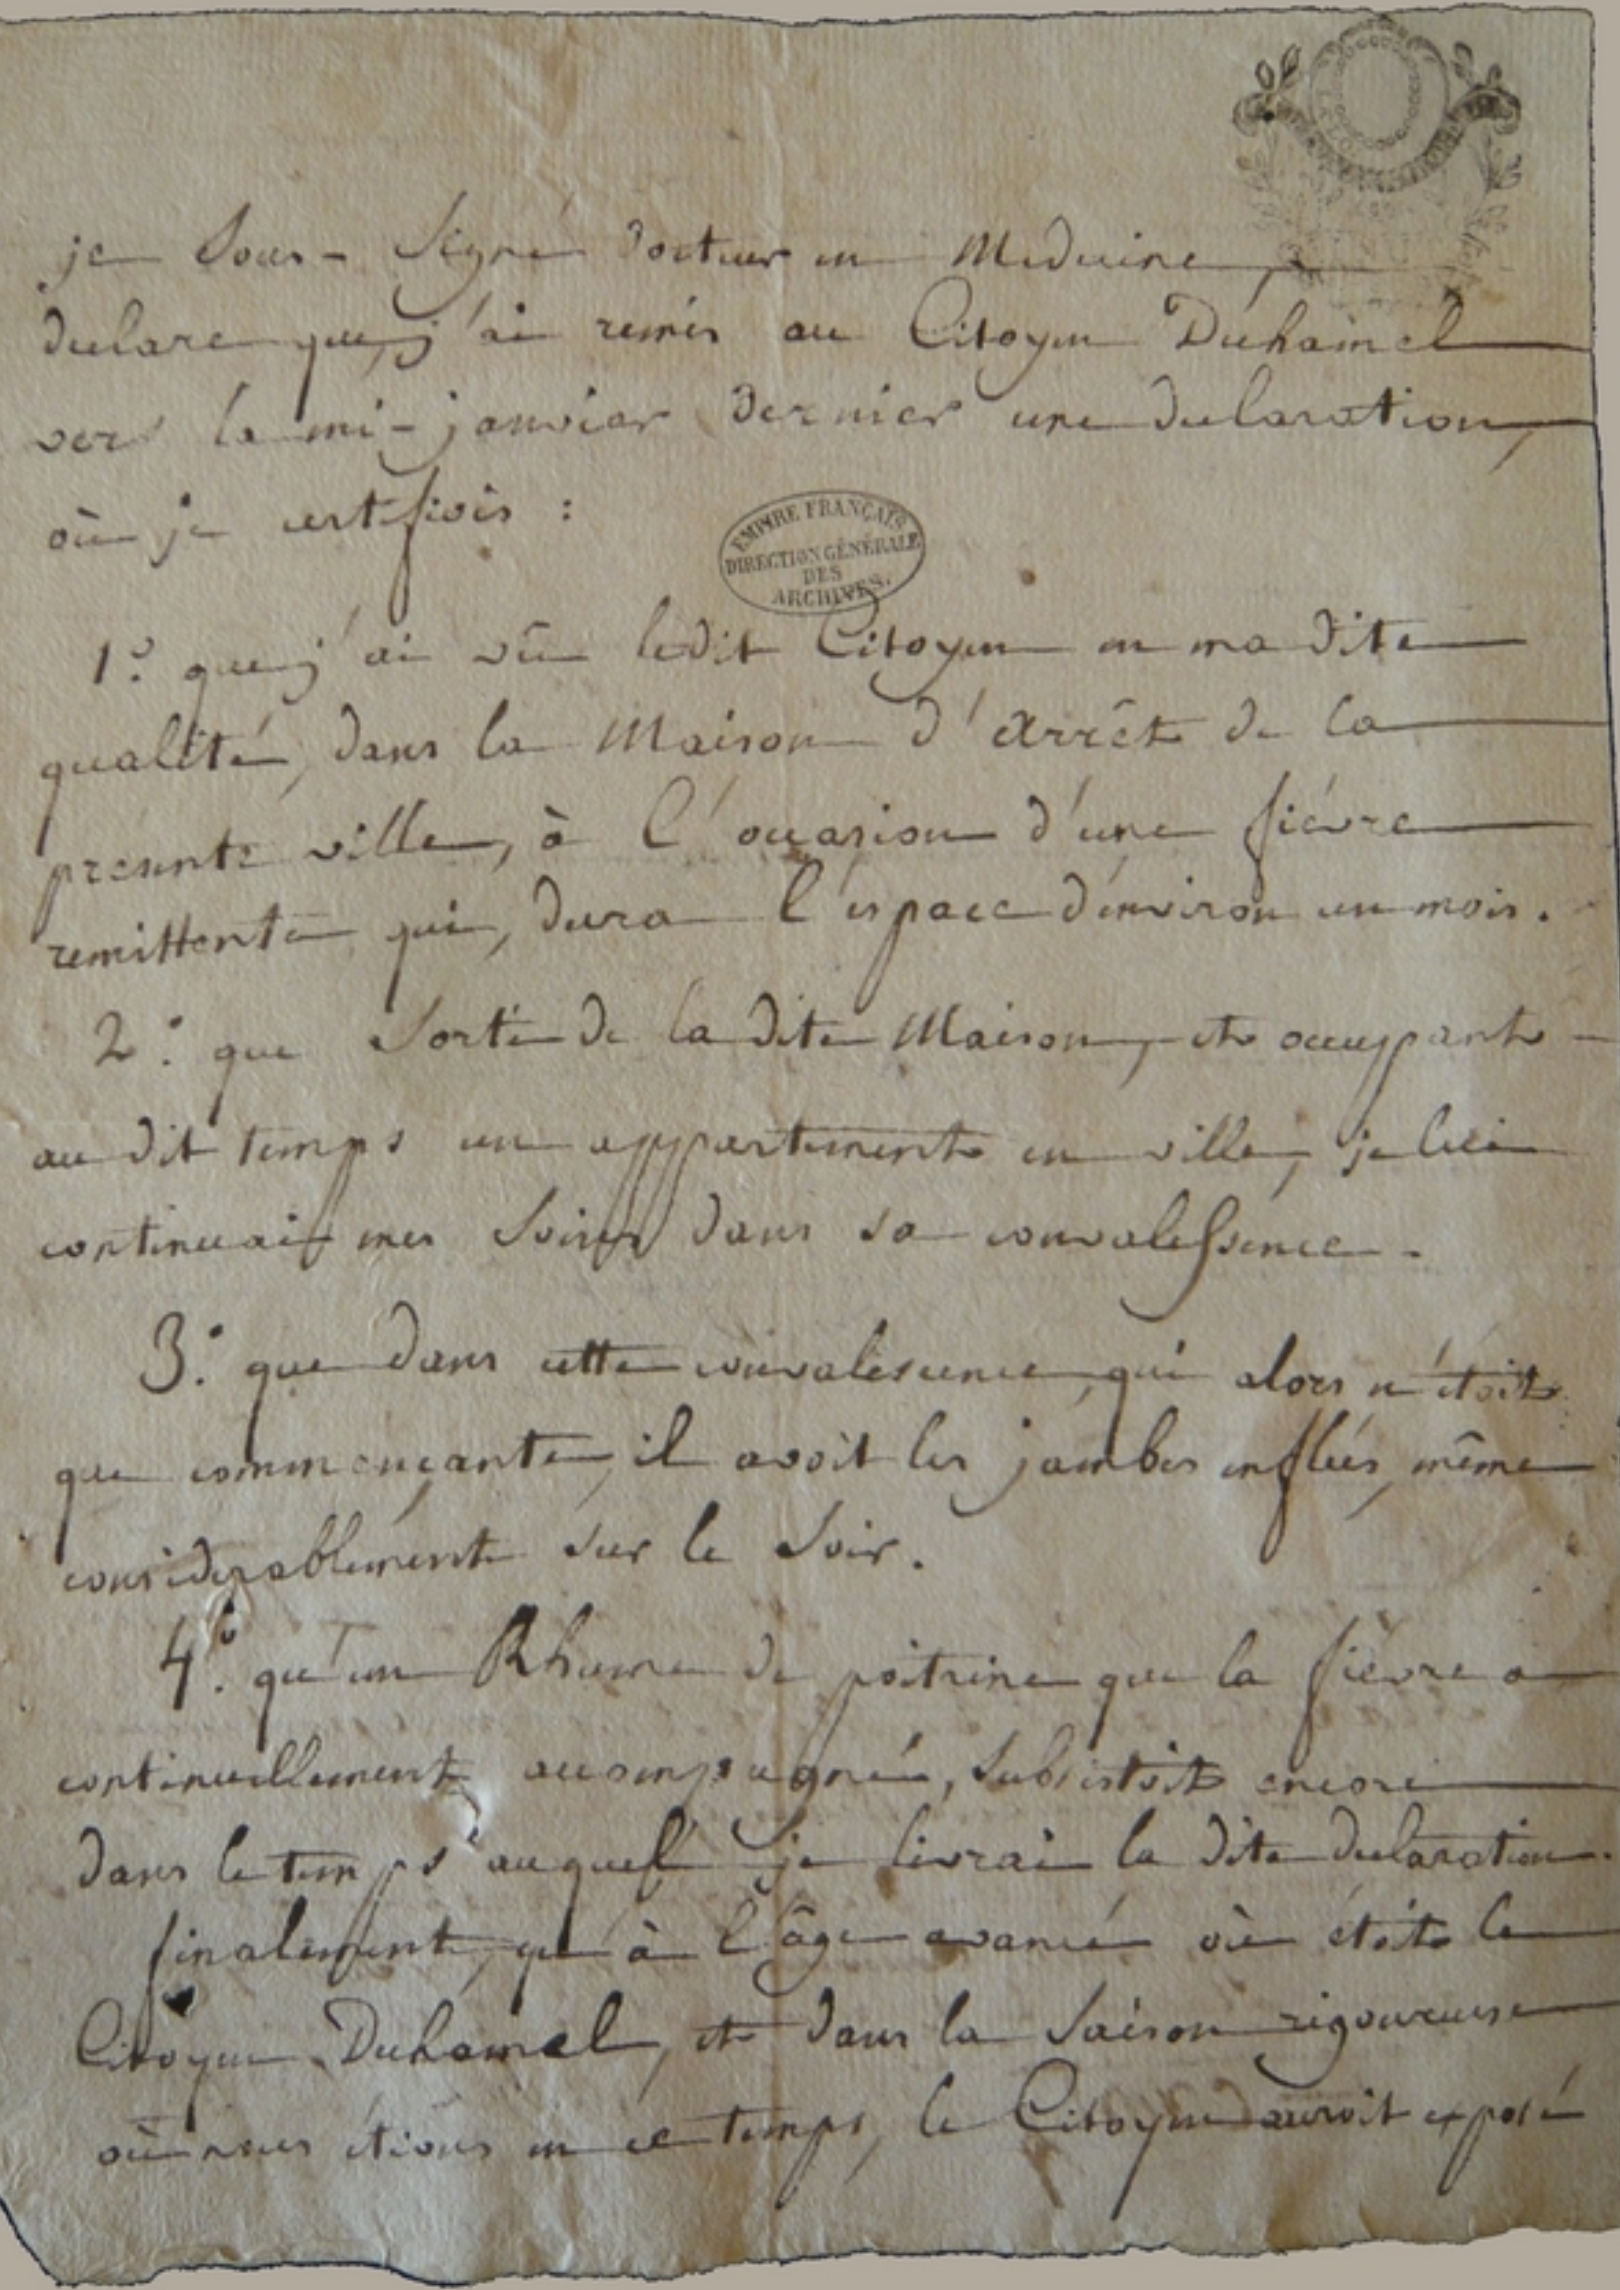 je sous-signé docteur en Medecine,
declare que j'ai remis au Citoyen Duhamel
vers la mi-janvier dernier une declaration,
où je certifiois :
EMPIRE FRANÇAIS
DIRECTION GÉNÉRALE
DES
ARCHIVES.
1.° que j'ai vû ledit Citoyen en ma dite
qualité, dans la Maison d'Arrêt de la
presente ville, à l'occasion d'une fiévre
remittente qui, dura l'espace d'environ un mois.
2.° que sorti de la dite Maison, et occupant
au dit temps un appartement en ville, je lui
continuais mes soins dans sa convalessence.
3.° que dans cette convalescence, qui alors n'étoit
que commençante, il avoit les jambes enflées, même
considerablement sur le soir.
4.° qu'un Rhume de poitrine que la fiévre a
continuellement accompagnée, subsistoit encore
dans le temps auquel je livrai la dite declaration.
finalement, qu'à l'âge avancé où étoit le
Citoyen Duhamel, et dans la saison rigoureuse
où nous étions en ce temps, le Citoyen auroit exposé